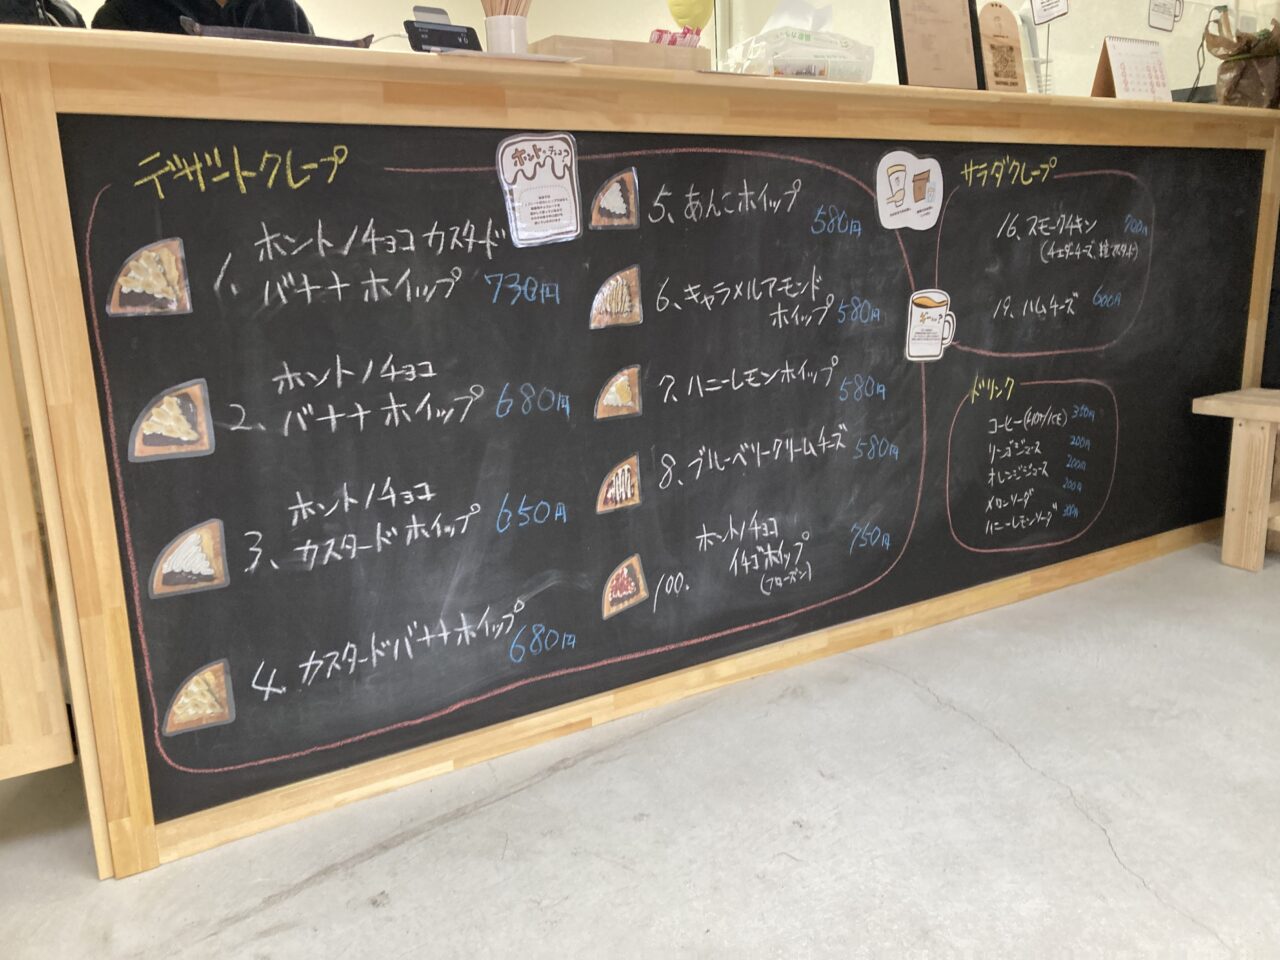 デザートクレープ
ホントノチョコ?
1. ホントノチョコ カスタード
バナナホイップ 730円
2. ホントノチョコ
バナナホイップ 680円
3. ホントノチョコ
カスタードホイップ 650円
4. カスタードバナナホイップ
680円
5、あんこホイップ
580円
6、キャラメルアーモンド
ホイップ 580円
7、ハニーレモンホイップ
580円
8、ブルーベリークリームチーズ 580円
100. ホントノチョコ
イチゴホイップ 750円
(フローズン)
サラダクレープ
16、スモークチキン 700円
(チェダーチーズ、粒マスタード)
19、ハムチーズ 600円
ドリンク
コーヒー 350円
リンゴジュース 200円
オレンジジュース 200円
メロンソーダ 200円
ハニーレモンソーダ